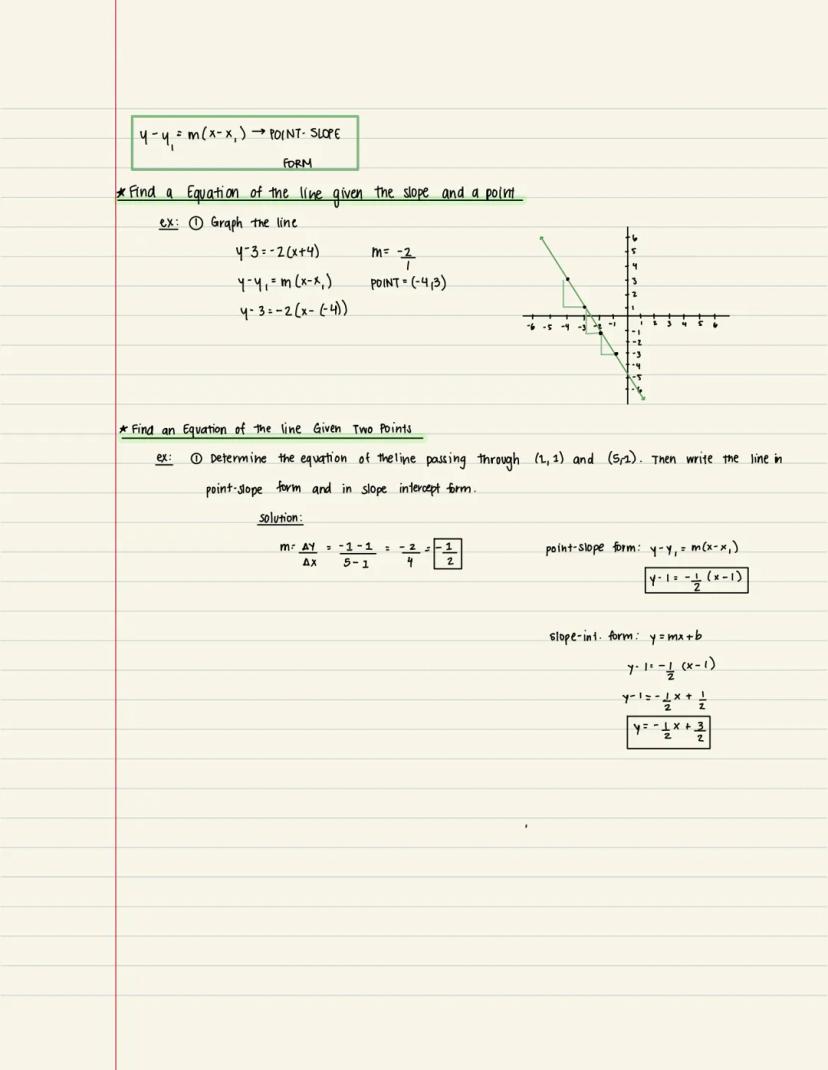 y-y₁ = m(x-x₁) → POINT-SLOPE
FORM
* Find a Equation of the line given the slope and a point
ex: ① Graph the line
y-3=-2(x+4)
m= -2/1
y-y₁= m(x-x₁)
POINT=(-4,3)
y-3=-2(x-(-4))
6
5
4
3
2
1
-6 -5 -4 -3 -2 -1 1 2 3 4 5 6
-1
-2
-3
-4
-5
-6
* Find an Equation of the line Given Two Points
ex: ① Determine the equation of the line passing through (1,1) and (5,-1). Then write the line in
point-slope form and in slope intercept form.
solution:
m= ΔY/ΔX = -1-1/5-1 = -2/4 = -1/2
point-slope form: y-y₁ = m(x-x₁)
y-1= -1/2 (x-1)
slope-int. form: y=mx+b
y-1= -1/2 (x-1)
y-1=-1/2 x + 1/2
y= -1/2 x + 3/2